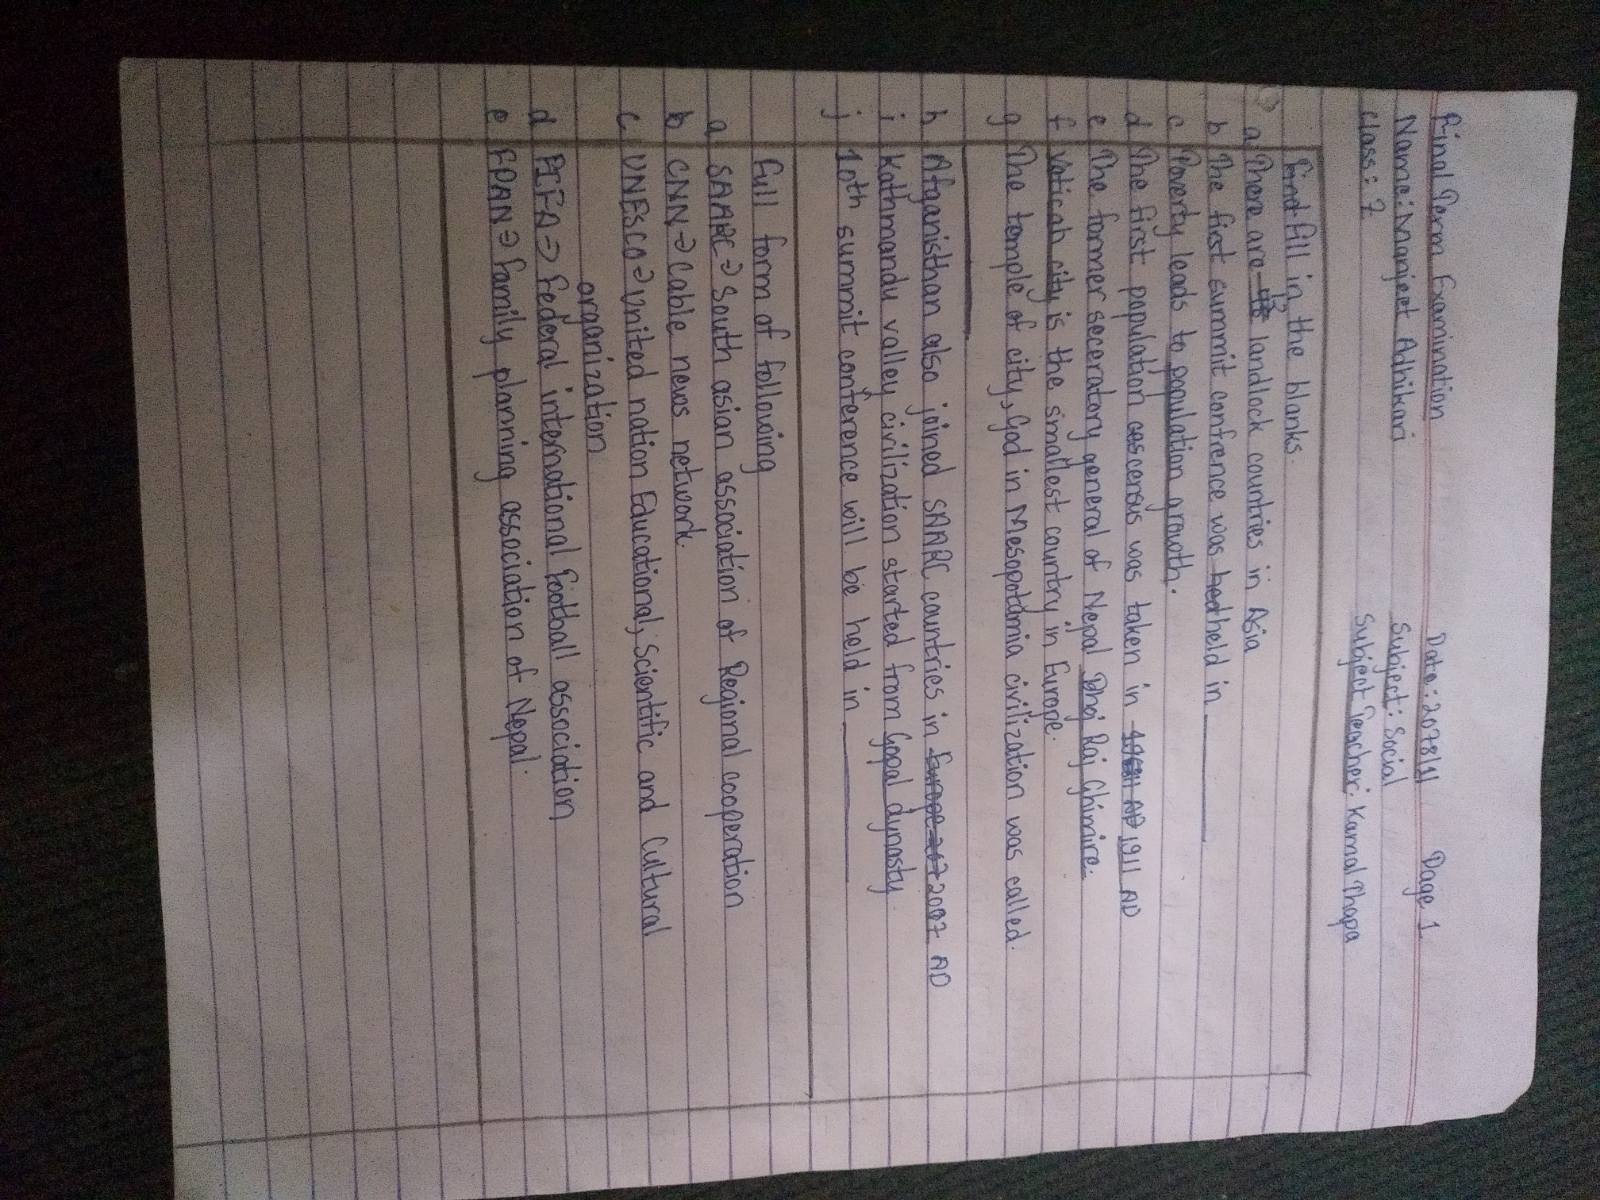 Final Term Examination Date: 2078/1/1 Page 1
Name: Manjeet Adhikari Subject: Social
Class: 7 Subject Teacher: Kamal Thapa
fill in the blanks.
a There are 12 landlock countries in Asia
b The first summit confrence was held in ______
c Poverty leads to population growth.
d The first population cescerous was taken in 1911 AD
e The former seceratory general of Nepal Dhoj Raj Ghimire.
f Vatican city is the smallest country in Europe.
g The temple of city, God in Mesopotamia civilization was called.
______
h Afganisthan also joined SAARC countries in 2007 AD
i Kathmandu valley civilization started from Gopal dynasty.
j 10th summit conference will be held in ______
Full form of following
a SAARC → South asian association of Regional cooperation
b CNN → Cable news network.
c UNESCO → United nation Educational, Scientific and Cultural
organization
d FIFA → Federal international Football association
e FPAN → Family planning association of Nepal.